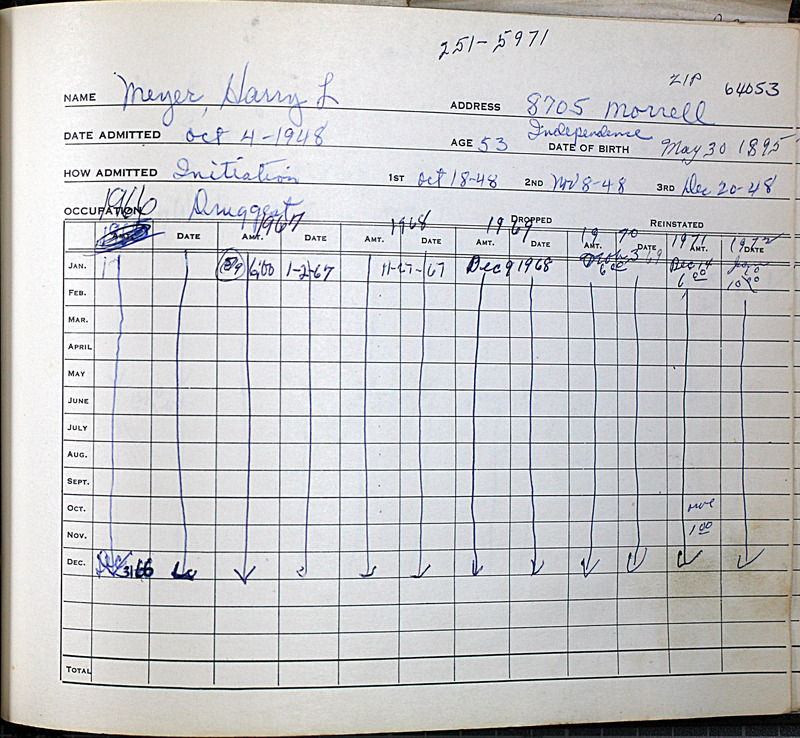 251-5971
ZIP 64053
NAME Meyer, Harry L ADDRESS 8705 Morrell
Independence
DATE ADMITTED Oct 4-1948 AGE 53 DATE OF BIRTH May 30 1895
HOW ADMITTED Initiation 1ST Oct 18-48 2ND Nov 8-48 3RD Dec 20-48
OCCUPATION Druggest
DROPPED REINSTATED
1966 1967 1968 1969 1970 1971 1972
DATE AMT. DATE AMT. DATE AMT. DATE AMT. DATE AMT. DATE
JAN. 6.00 1-2-67 11-27-67 Dec 9 1968 6 00 Dec 14 6 00 10 00
FEB.
MAR.
APRIL
MAY
JUNE
JULY
AUG.
SEPT.
OCT. owe
NOV. 1 00
DEC. 3166
TOTAL